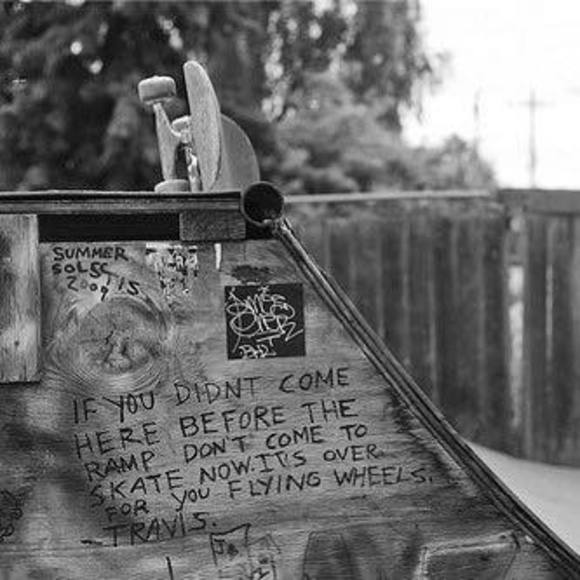 SUMMER
SOLSTIS
2009
IF YOU DIDNT COME
HERE BEFORE THE
RAMP DON'T COME TO
SKATE NOW.IT'S OVER
FOR YOU FLYING WHEELS.
-TRAVIS.